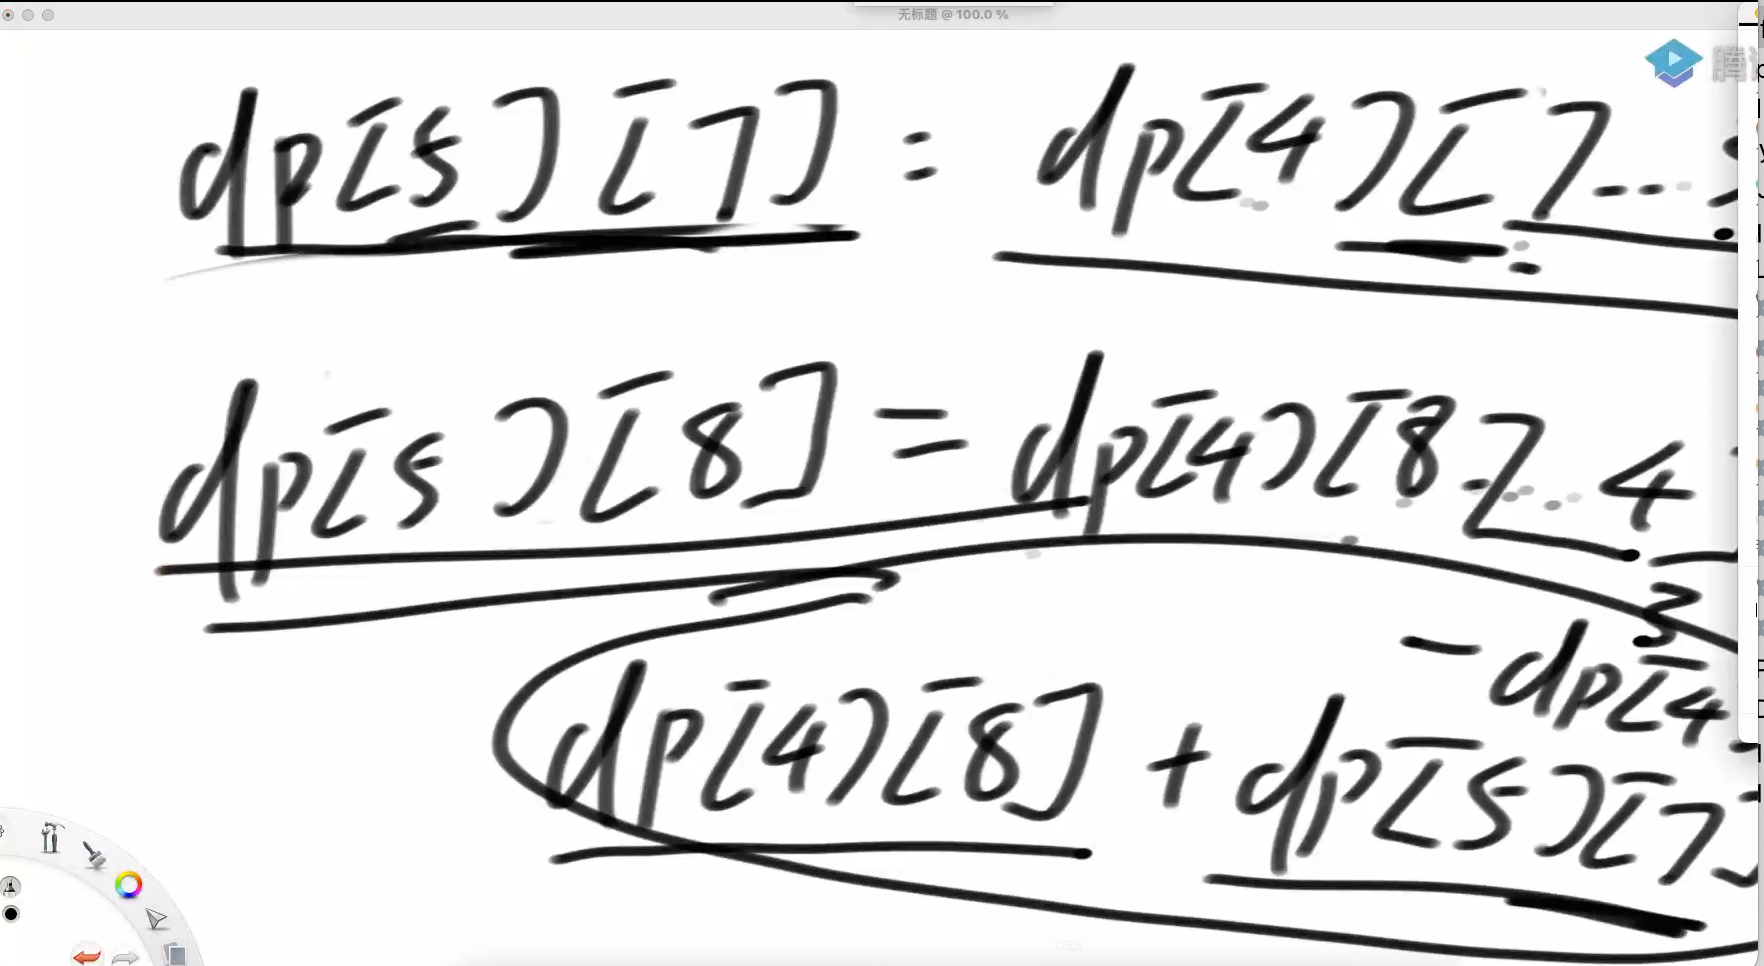 无标题 @ 100.0 %
腾
dp[5][7] = dp[4][7...3
dp[5][8] = dp[4][8...4
3
- dp[4
dp[4][8] + dp[5][7]